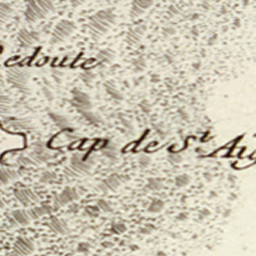 Redoute
Cap de St. Au